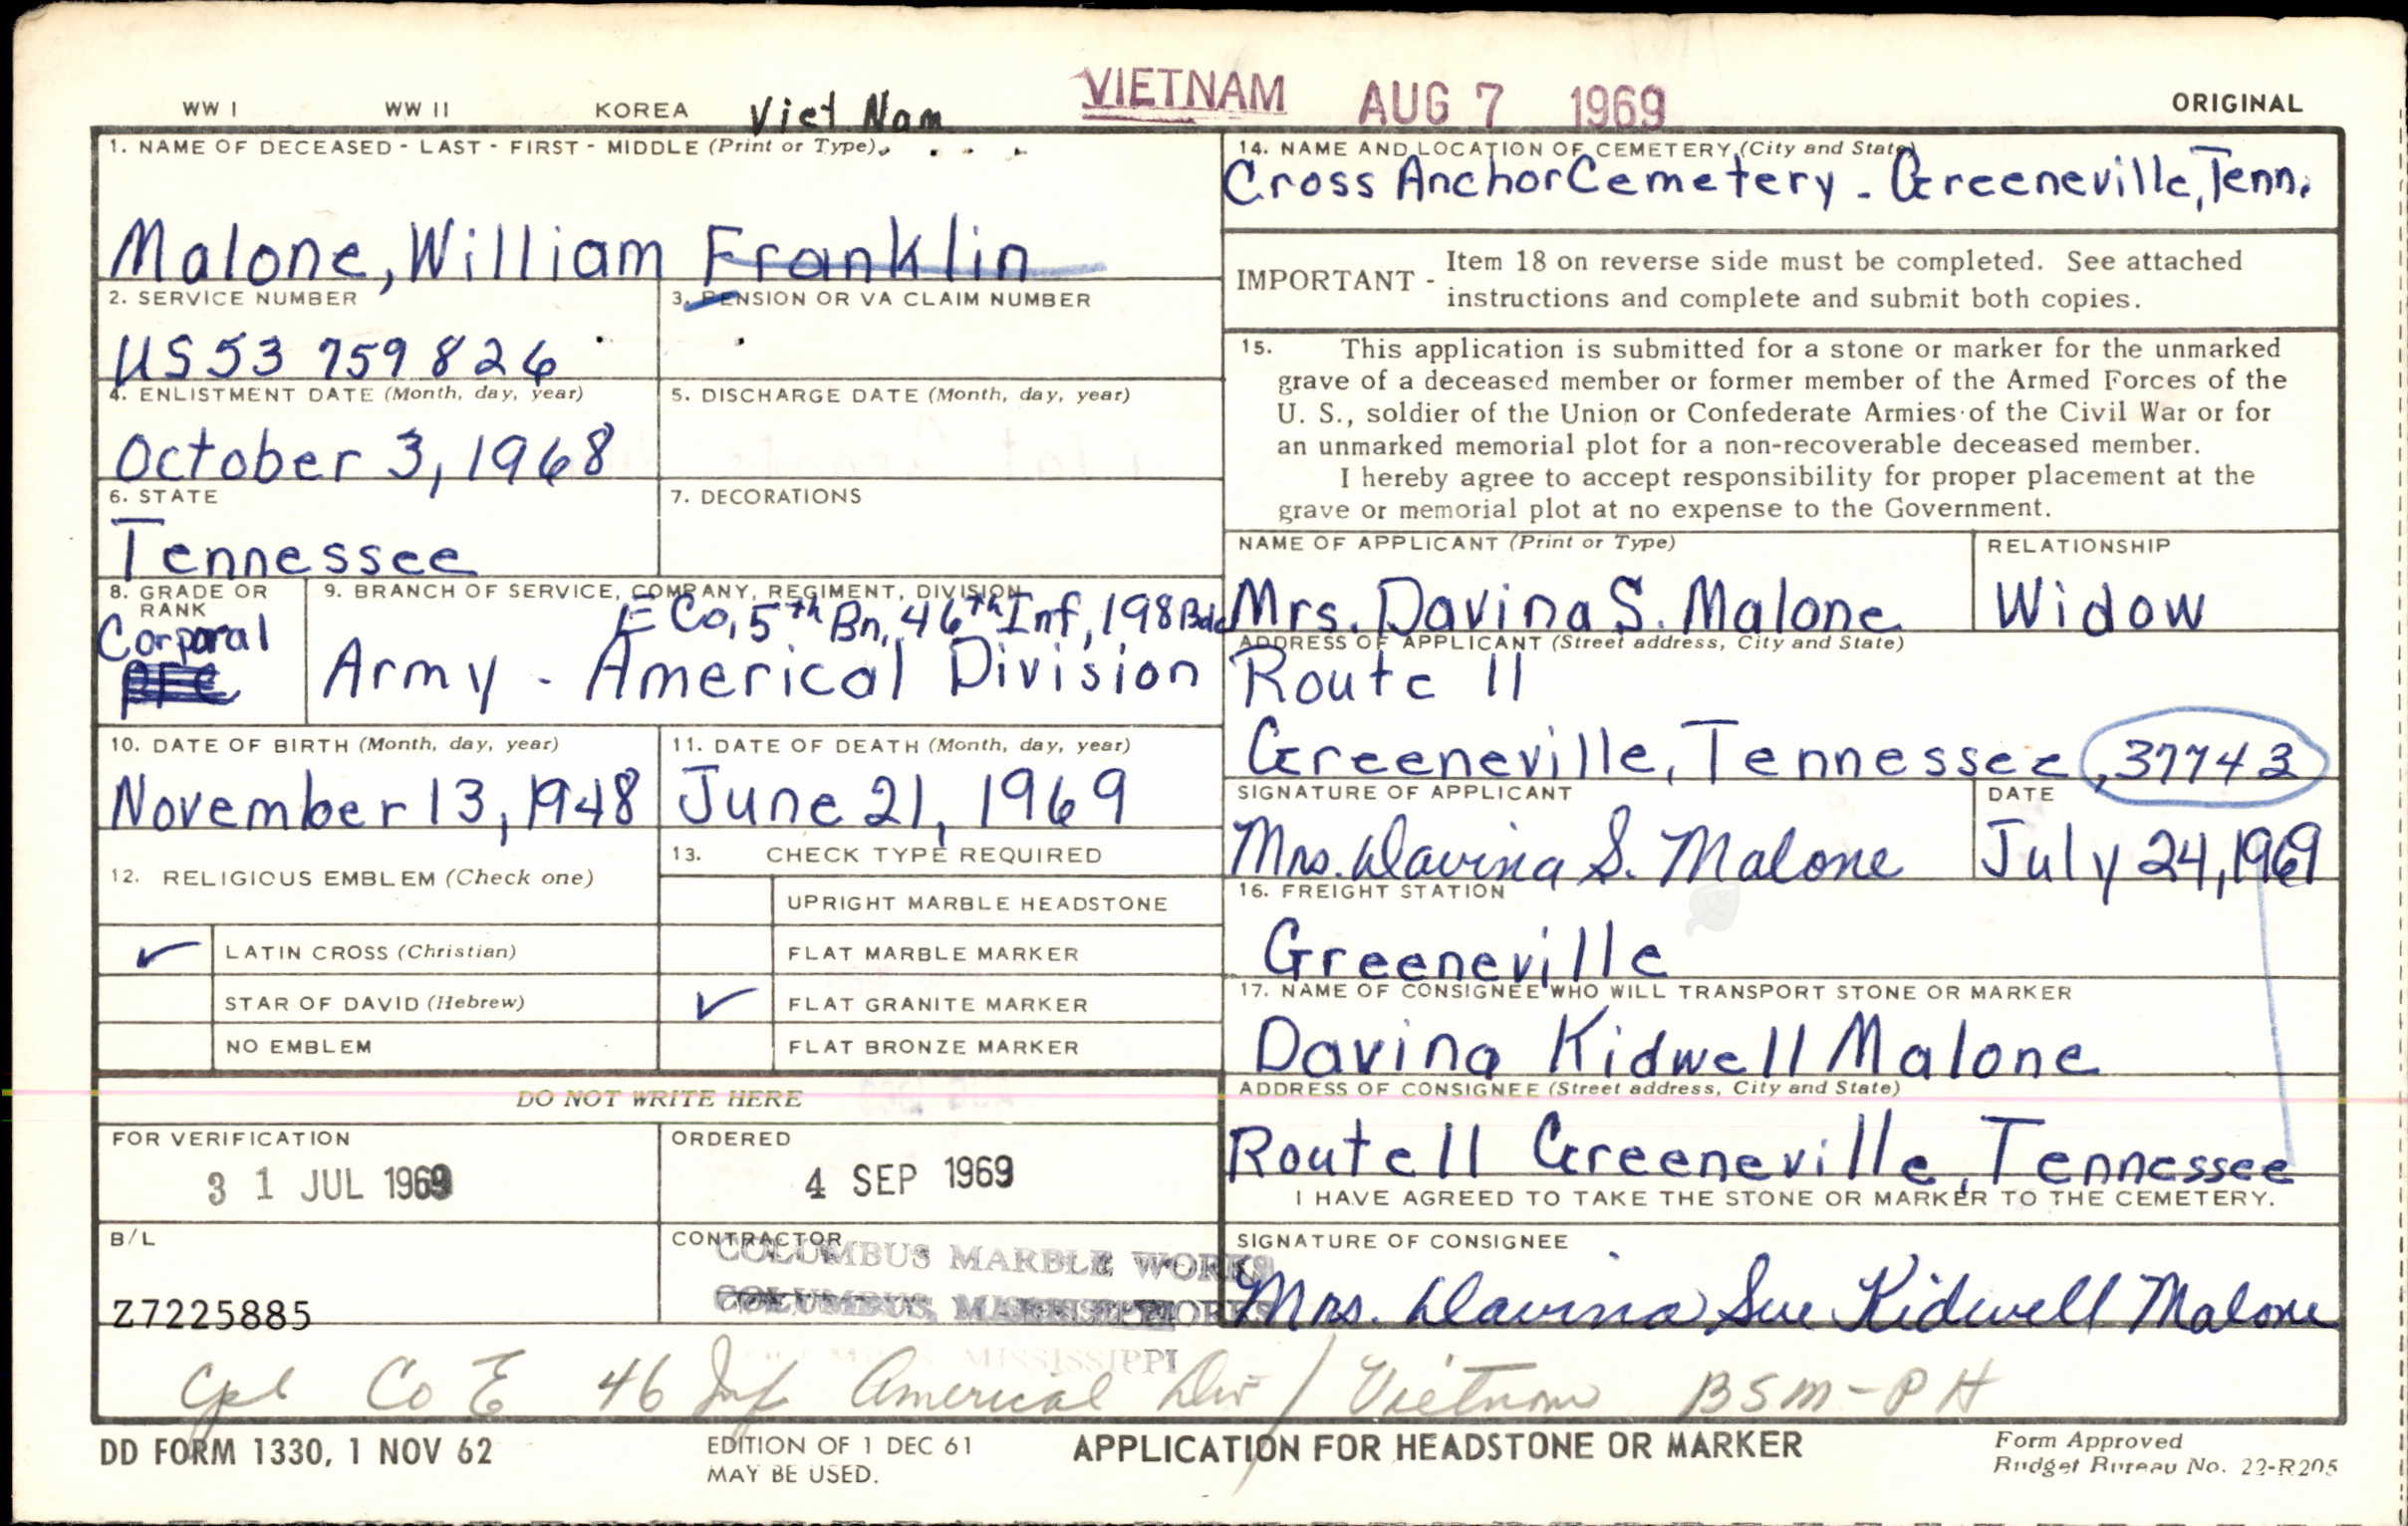 WW I WW II KOREA Viet Nam VIETNAM AUG 7 1969 ORIGINAL
1. NAME OF DECEASED - LAST - FIRST - MIDDLE (Print or Type)
Malone, William Franklin
2. SERVICE NUMBER
US 53 759 826
3. PENSION OR VA CLAIM NUMBER
4. ENLISTMENT DATE (Month, day, year)
October 3, 1968
5. DISCHARGE DATE (Month, day, year)
6. STATE
Tennessee
7. DECORATIONS
8. GRADE OR RANK
Corporal
PFC
9. BRANCH OF SERVICE, COMPANY, REGIMENT, DIVISION
E Co, 5th Bn, 46th Inf, 198 Bde
Army - Americal Division
10. DATE OF BIRTH (Month, day, year)
November 13, 1948
11. DATE OF DEATH (Month, day, year)
June 21, 1969
12. RELIGIOUS EMBLEM (Check one)
✓ LATIN CROSS (Christian)
STAR OF DAVID (Hebrew)
NO EMBLEM
13. CHECK TYPE REQUIRED
UPRIGHT MARBLE HEADSTONE
FLAT MARBLE MARKER
✓ FLAT GRANITE MARKER
FLAT BRONZE MARKER
DO NOT WRITE HERE
FOR VERIFICATION
31 JUL 1969
ORDERED
4 SEP 1969
B/L
Z7225885
CONTRACTOR
COLUMBUS MARBLE WORKS
MISSISSIPPI
14. NAME AND LOCATION OF CEMETERY (City and State)
Cross Anchor Cemetery - Greeneville, Tenn.
IMPORTANT - Item 18 on reverse side must be completed. See attached
instructions and complete and submit both copies.
15. This application is submitted for a stone or marker for the unmarked
grave of a deceased member or former member of the Armed Forces of the
U. S., soldier of the Union or Confederate Armies of the Civil War or for
an unmarked memorial plot for a non-recoverable deceased member.
I hereby agree to accept responsibility for proper placement at the
grave or memorial plot at no expense to the Government.
NAME OF APPLICANT (Print or Type)
Mrs. Davina S. Malone
RELATIONSHIP
Widow
ADDRESS OF APPLICANT (Street address, City and State)
Route 11
Greeneville, Tennessee, 37743
SIGNATURE OF APPLICANT
Mrs. Davina S. Malone
DATE
July 24, 1969
16. FREIGHT STATION
Greeneville
17. NAME OF CONSIGNEE WHO WILL TRANSPORT STONE OR MARKER
Davina Kidwell Malone
ADDRESS OF CONSIGNEE (Street address, City and State)
Route 11 Greeneville, Tennessee
I HAVE AGREED TO TAKE THE STONE OR MARKER TO THE CEMETERY.
SIGNATURE OF CONSIGNEE
Mrs. Davina Sue Kidwell Malone
Cpl Co E 46 Inf Americal Div / Vietnam BSM-PH
DD FORM 1330, 1 NOV 62
EDITION OF 1 DEC 61
MAY BE USED.
APPLICATION FOR HEADSTONE OR MARKER
Form Approved
Budget Bureau No. 22-R205